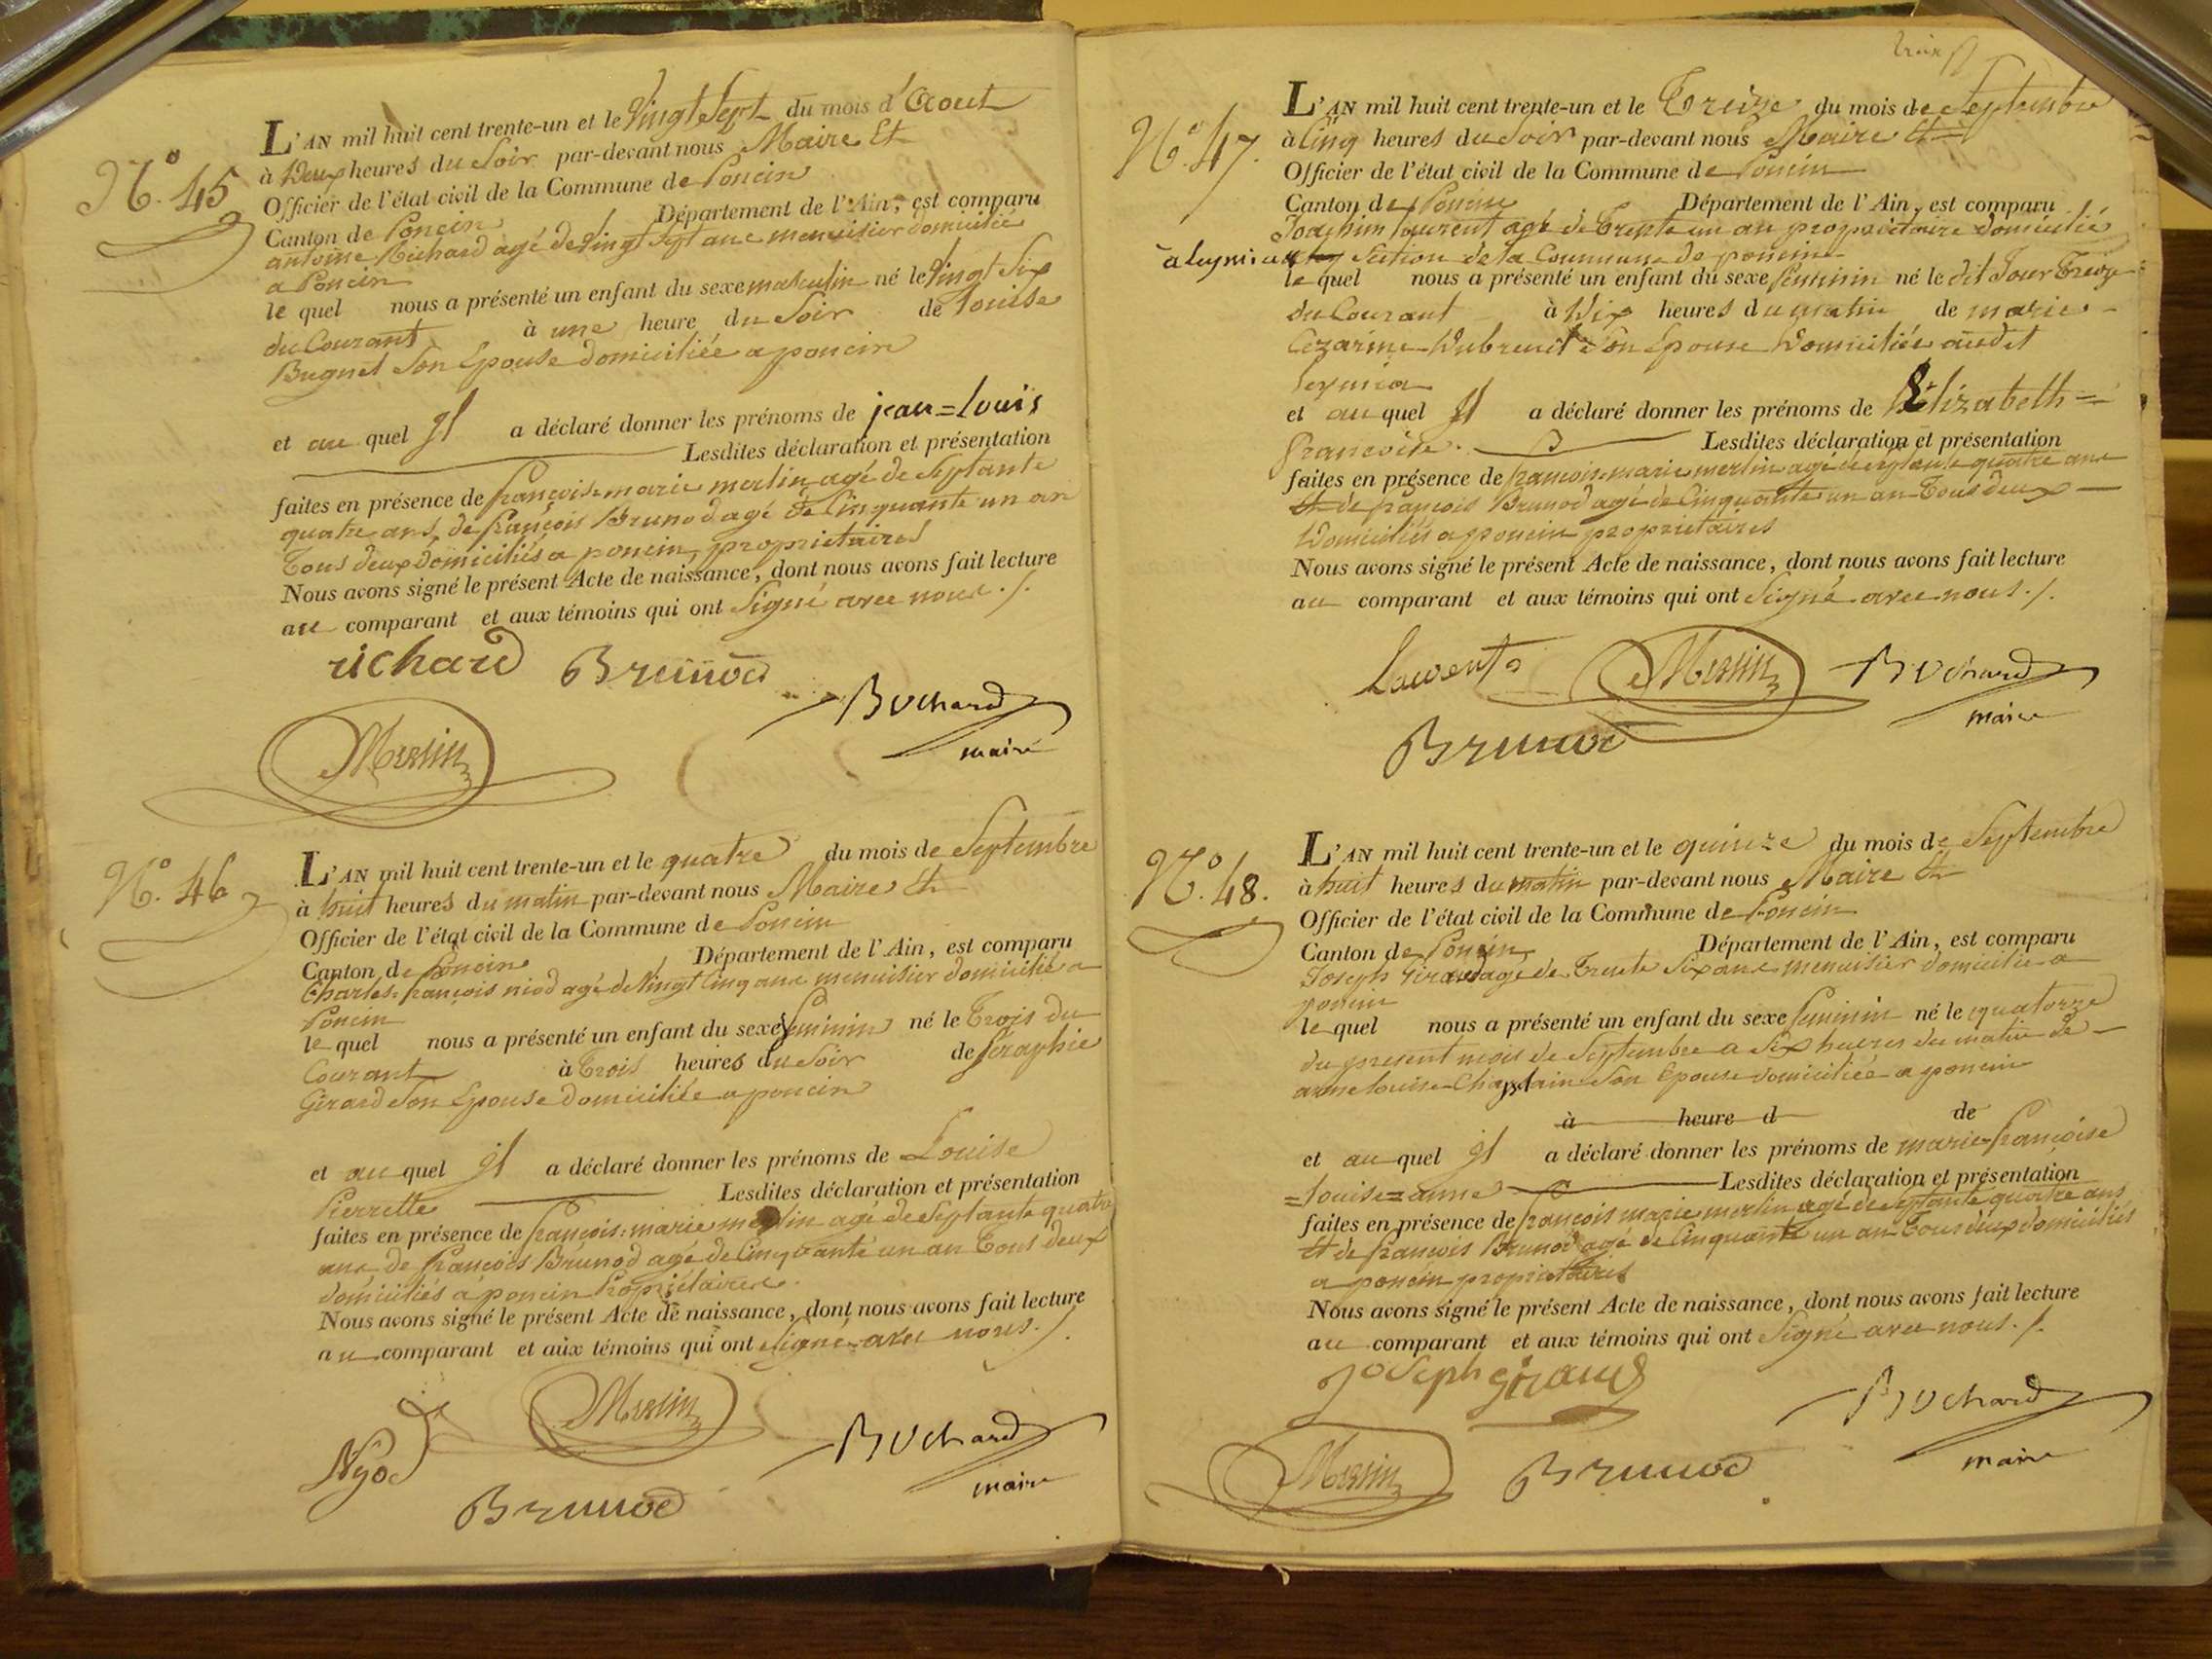 N.o 45
L'AN mil huit cent trente-un et le vingt Sept du mois d'Aout
à Deux heures du Soir par-devant nous Maire Et
Officier de l'état civil de la Commune de Poncin
Canton de Poncin Département de l'Ain, est comparu
antoine Richard agé de vingt Sept ans menuisier domicilié
a Poncin
le quel nous a présenté un enfant du sexe masculin né le vingt Six
du Courant à une heure du Soir de Louise
Bugnet Son Epouse domiciliée a poncin
et au quel Il a déclaré donner les prénoms de jean=Louis
Lesdites déclaration et présentation
faites en présence de francois-marie merlin agé de Septante
quatre ans, de françois Brunod agé de Cinquante un an
Tous deux domiciliés a poncin, proprietaires
Nous avons signé le présent Acte de naissance, dont nous avons fait lecture
au comparant et aux témoins qui ont Signé avec nous ./.
richard Brunod
Buchard
maire
Merlin
N.o 46
L'AN mil huit cent trente-un et le quatre du mois de Septembre
à huit heures du matin par-devant nous Maire Et
Officier de l'état civil de la Commune de Poncin
Canton de Poncin Département de l'Ain, est comparu
Charles-françois niod agé de vingt Cinq ans menuisier domicilié a
Poncin
le quel nous a présenté un enfant du sexe feminin né le Trois du
Courant à Trois heures du Soir de Seraphie
Girard Son Epouse domiciliée a poncin
et au quel Il a déclaré donner les prénoms de Louise
Pierrette Lesdites déclaration et présentation
faites en présence de françois-marie merlin agé de Septante quatre
ans de françois Brunod agé de Cinquante un an Tous deux
domiciliés a poncin Propriétaires.
Nous avons signé le présent Acte de naissance, dont nous avons fait lecture
au comparant et aux témoins qui ont Signé avec nous ./.
Nyod
Merlin
Buchard
maire
Brunod
N.o 47.
L'AN mil huit cent trente-un et le Treize du mois de Septembre
à Cinq heures du Soir par-devant nous Maire Et
Officier de l'état civil de la Commune de Poncin
Canton de Poncin Département de l'Ain, est comparu
Joachim Laurent agé de Trente un an proprietaire domicilié
à Leymiat Section de la Commune de poncin
le quel nous a présenté un enfant du sexe feminin né le dit Jour Treize
du Courant à Dix heures du matin de marie
Cezarine Dubreuil Son Epouse Domiciliée audit
Leymia
et au quel Il a déclaré donner les prénoms de Elizabeth=
francoise. Lesdites déclaration et présentation
faites en présence de francois-marie merlin agé de Septante quatre ans
Et de françois Brunod agé de Cinquante un an Tous deux
Domiciliés a poncin proprietaires
Nous avons signé le présent Acte de naissance, dont nous avons fait lecture
au comparant et aux témoins qui ont Signé avec nous ./.
Laurent Merlin Buchard
maire
Brunod
N.o 48.
L'AN mil huit cent trente-un et le quinze du mois de Septembre
à huit heures du matin par-devant nous Maire Et
Officier de l'état civil de la Commune de Poncin
Canton de Poncin Département de l'Ain, est comparu
Joseph Giraud agé de Trente Six ans menuisier domicilié a
poncin
le quel nous a présenté un enfant du sexe feminin né le quatorze
du present mois de Septembre a Six heures du matin de
anne Louise Chaplain Son Epouse domiciliée a poncin
à heure d de
et au quel Il a déclaré donner les prénoms de marie-françoise
=Louise=anne Lesdites déclaration et présentation
faites en présence de françois marie merlin agé de Septante quatre ans
Et de francois Brunod agé de Cinquante un an Tous deux domiciliés
a poncin proprietaires
Nous avons signé le présent Acte de naissance, dont nous avons fait lecture
au comparant et aux témoins qui ont Signé avec nous ./.
Joseph giraud
Buchard
maire
Merlin Brunod